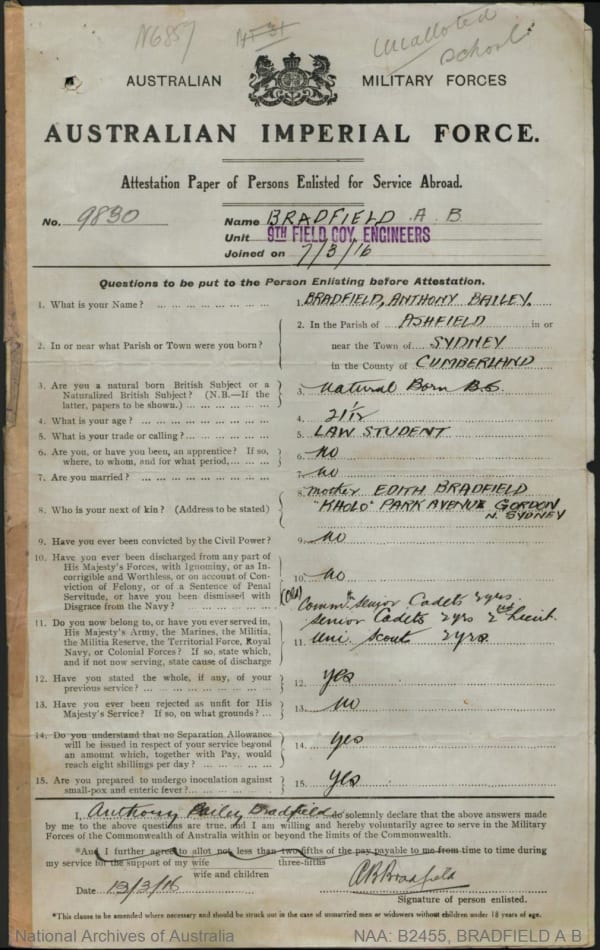 N6857
Unalloted
School
AUSTRALIAN MILITARY FORCES
AUSTRALIAN IMPERIAL FORCE.
Attestation Paper of Persons Enlisted for Service Abroad.
No. 9830 Name BRADFIELD A. B
Unit 9TH FIELD COY. ENGINEERS
Joined on 7/3/16
Questions to be put to the Person Enlisting before Attestation.
1. What is your Name? ... 1. BRADFIELD, ANTHONY BAILEY.
2. In or near what Parish or Town were you born? 2. In the Parish of ASHFIELD in or
near the Town of SYDNEY
in the County of CUMBERLAND
3. Are you a natural born British Subject or a
Naturalized British Subject? (N.B.—If the
latter, papers to be shown.) ... 3. Natural Born B.S.
4. What is your age? ... 4. 21 1/12
5. What is your trade or calling? ... 5. LAW STUDENT
6. Are you, or have you been, an apprentice? If so,
where, to whom, and for what period, ... 6. No
7. Are you married? ... 7. No
8. Who is your next of kin? (Address to be stated) 8. Mother EDITH BRADFIELD
"KAOLO" PARK AVENUE GORDON
N. SYDNEY
9. Have you ever been convicted by the Civil Power? 9. No
10. Have you ever been discharged from any part of
His Majesty's Forces, with Ignominy, or as In-
corrigible and Worthless, or on account of Con-
viction of Felony, or of a Sentence of Penal
Servitude, or have you been dismissed with
Disgrace from the Navy? ... 10. No
11. Do you now belong to, or have you ever served in,
His Majesty's Army, the Marines, the Militia,
the Militia Reserve, the Territorial Force, Royal
Navy, or Colonial Forces? If so, state which,
and if not now serving, state cause of discharge
(Old) Comm. Senior Cadets 2yrs.
Senior Cadets 2yrs 2nd Lieut.
11. Uni Scouts 2yrs.
12. Have you stated the whole, if any, of your
previous service? ... 12. Yes
13. Have you ever been rejected as unfit for His
Majesty's Service? If so, on what grounds? ... 13. No
14. Do you understand that no Separation Allowance
will be issued in respect of your service beyond
an amount which, together with Pay, would
reach eight shillings per day? ... 14. Yes
15. Are you prepared to undergo inoculation against
small-pox and enteric fever? ... 15. Yes
I, Anthony Bailey Bradfield do solemnly declare that the above answers made
by me to the above questions are true, and I am willing and hereby voluntarily agree to serve in the Military
Forces of the Commonwealth of Australia within or beyond the limits of the Commonwealth.
*And I further agree to allot not less than two-fifths of the pay payable to me from time to time during
three-fifths
my service for the support of my wife
wife and children
Date 13/3/16 A B Bradfield
Signature of person enlisted.
*This clause to be amended where necessary and should be struck out in the case of unmarried men or widowers without children under 18 years of age.
National Archives of Australia NAA: B2455, BRADFIELD A B